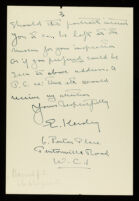 3
Should this portrait interest
you I can be left to the
museum for your inspection
or if you prefer could be
sent to above address. A
P.C. or line etc would
receive my attention
Yours Respectfully
E. Henly
6 Penton Place
Pentonville Road
W.C.1